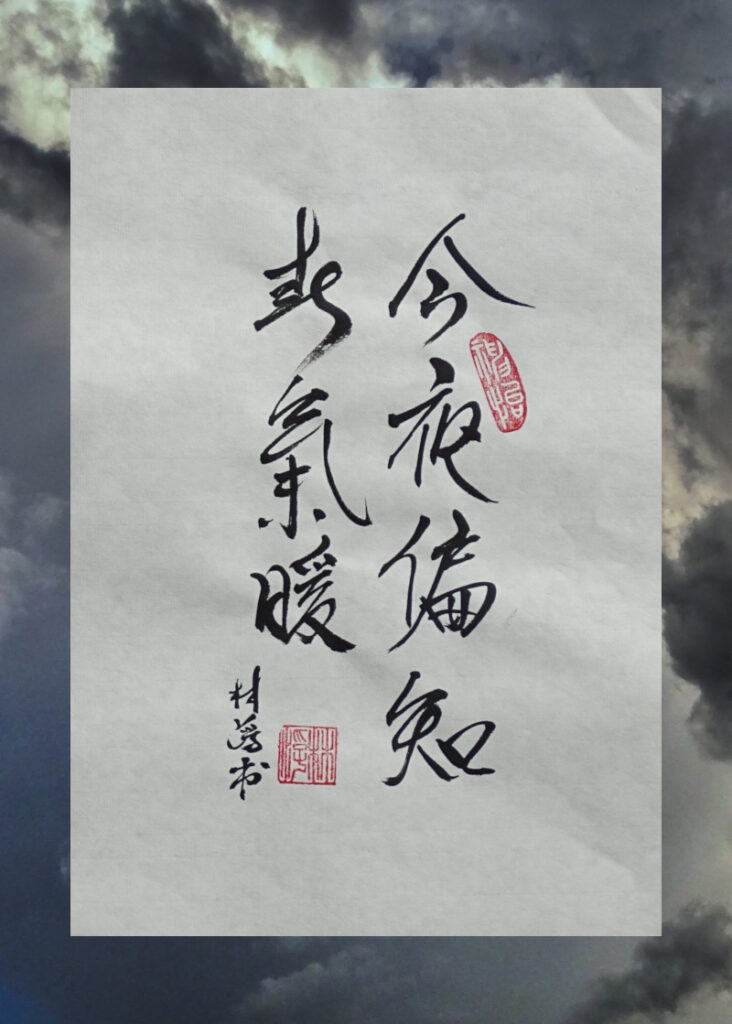 今夜偏知
春氣暖
林 书